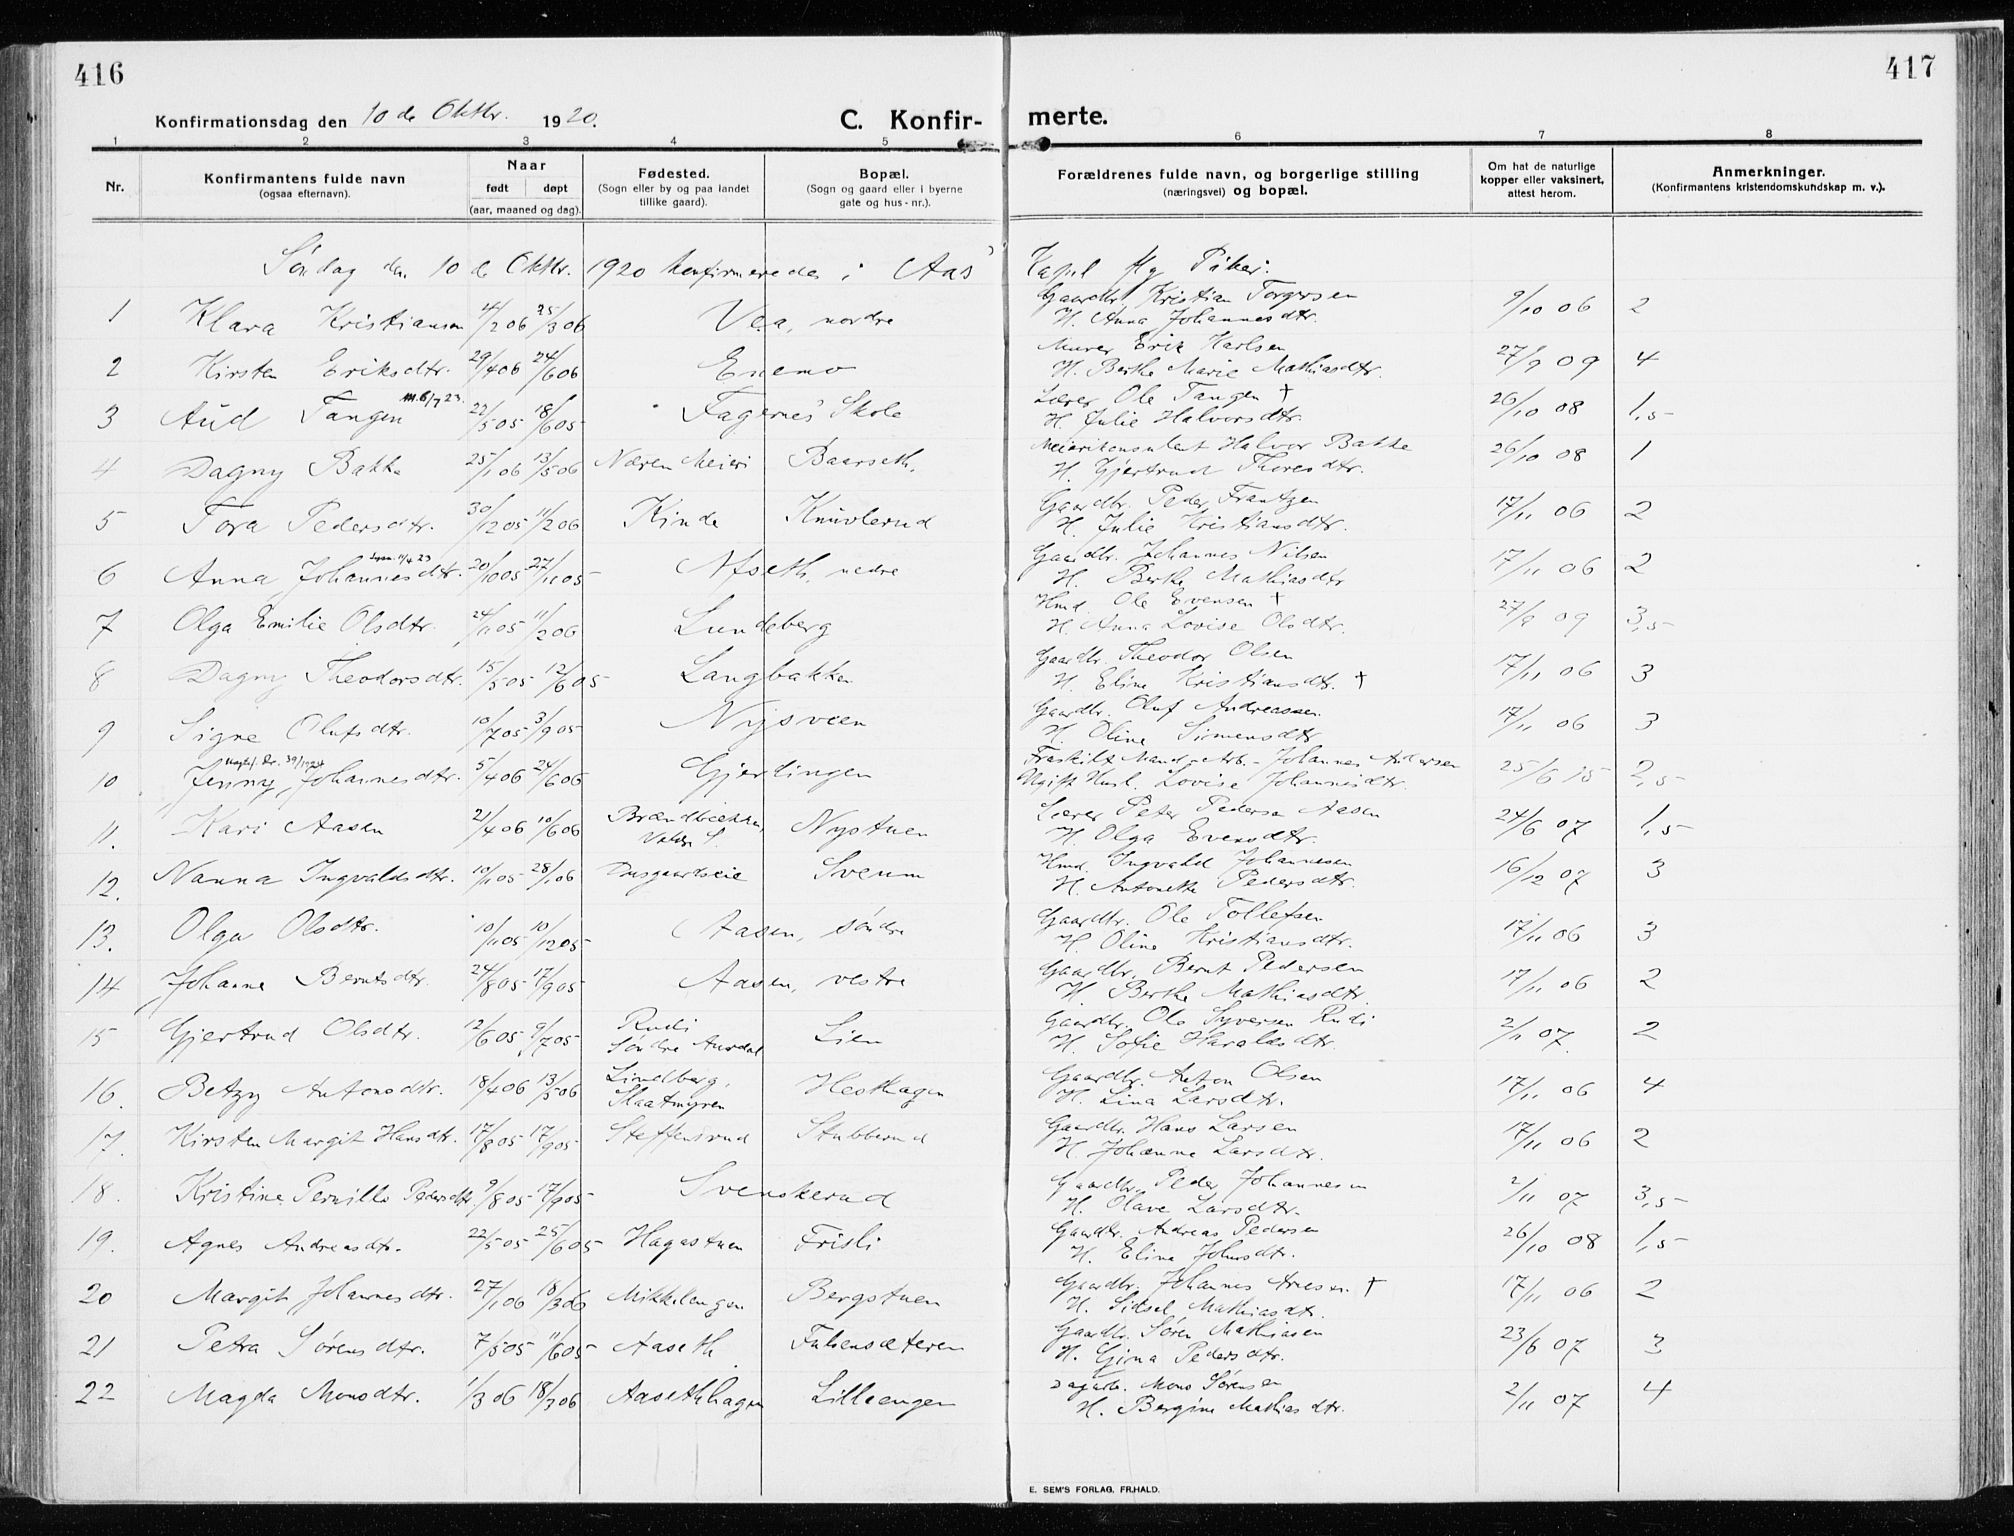 416
417
Konfirmationsdag den 10 de Oktbr. 1920.
C. Konfir-
merte.
1 2 3 4 5 6 7 8
Nr.
Konfirmantens fulde navn
(ogsaa efternavn).
Naar
født døpt
(aar, maaned og dag).
Fødested.
(Sogn eller by og paa landet
tillike gaard).
Bopæl.
(Sogn og gaard eller i byerne
gate og hus-nr.).
Forældrenes fulde navn, og borgerlige stilling
(næringsvei) og bopæl.
Om hat de naturlige
kopper eller vaksinert,
attest herom.
Anmerkninger.
(Konfirmantens kristendomskundskap m. v.).
Søndag den 10 de Oktbr. 1920 konfirmeredes i Aas Kapel flg Piker:
Gaardbr. Kristian Torgersen
1 Klara Kristiansen 4/2 06 25/3 06 Vea, nordre 9/10 06 2
H. Anna Johannesdtr.
Murer Erik Karlsen
2 Kirsten Eriksdtr. 29/4 06 24/6 06 Enemo 27/9 09 4
H. Berthe Marie Mathiasdtr.
Lærer Ole Tangen †
3 Aud Tangen m. 6/7 23. 22/5 05 18/6 05 Fagernes Skole 26/10 08 1,5
H. Julie Halvorsdtr.
Meierikonsulent Halvor Bakke
4 Dagny Bakke 25/1 06 13/5 06 Næren Meieri Baarseth. 26/10 08 1
H. Gjertrud Thoresdtr.
Gaardbr. Peder Frantzen
5 Tora Pedersdtr. 30/12 05 11/2 06 Kinde Knuvlerud 17/11 06 2
H. Julie Kristiansdtr.
Gaardbr. Johannes Nilsen
6 Anna Johannesdtr. 11/4 23 20/10 05 27/11 05 Afseth, nedre 17/11 06 2
H. Berthe Mathiasdtr
Hmd. Ole Evensen †
7 Olga Emilie Olsdtr. 24/11 05 11/2 06 Lundeberg 27/9 09 3,5
H. Anna Lovise Olsdtr.
Gaardbr. Theodor Olsen
8 Dagny Theodorsdtr. 15/5 05 12/6 05 Langbakken 17/11 06 3
H. Eline Kristiansdtr. †
Gaardbr. Oluf Andreassen
9 Signe Olufsdtr. 10/7 05 3/9 05 Nysveen 17/11 06 3
H. Oline Simensdtr
Fraskilt Mand - Arb. - Johannes Andersen
10 Jenny Johannesdtr. 39/1924 5/4 06 24/6 06 Gjerdingen 25/6 15 2,5
Ugift Hush. Lovise Johannesdtr.
Lærer Peter Pedersen Aasen
11. Kari Aasen 21/4 06 10/6 06 Brændbækken, Valdr. S. Nystuen 24/6 07 1,5
H. Olga Evensdtr.
Hmd. Ingvald Johannesen
12. Nanna Ingvaldsdtr. 10/11 05 28/1 06 Dusgaardseie Sveum 16/12 07 3
H. Antonette Pedersdtr.
Gaardbr. Ole Tollefsen
13. Olga Olsdtr. 10/11 05 10/12 05 Aasen, søndre 17/11 06 3
H. Oline Kristiansdtr.
Gaardbr. Bernt Pedersen
14 Johanne Berntsdtr. 24/8 05 17/9 05 Aasen, vestre 17/11 06 2
H. Berthe Mathiasdtr
Gaardbr. Ole Syversen Rudi
15 Gjertrud Olsdtr. 12/6 05 9/7 05 Rudi Søndre Aurdal Lien 2/11 07. 2
H. Sofie Haraldsdtr.
Gaardbr. Anton Olsen
16. Betzy Antonsdtr. 18/4 06 13/5 06 Lindberg, Slaatmyren Hesthagen 17/11 06 4
H. Lina Larsdtr.
Gaardbr. Hans Larsen
17. Kirsten Margit Hansdtr. 17/8 05 17/9 05 Steffensrud Stubberud 17/11 06 2
H. Johanne Larsdtr.
Gaardbr. Peder Johannesen
18. Kristine Pernille Pedersdtr 9/8 05 17/9 05 Svenskerud 2/11 07 3,5
H. Olave Larsdtr.
Gaardbr. Andreas Pedersen
19. Agnes Andreasdtr. 22/5 05 25/6 05 Hagastuen Frisli 26/10 08 1,5
H. Elina Johnsdtr.
Gaardbr. Johannes Arnesen. †
20 Margit Johannesdtr. 27/1 06 18/3 06 Mikkelengen Bergstuen 17/11 06 2
H. Sidsel Mathiasdtr.
Gaardbr. Søren Mathiasen
21 Petra Sørensdtr. 7/5 05 11/6 05 Aaseth Fulsensæteren 23/6 07 3
H. Gina Pedersdtr.
Dagarb. Mons Sørensen
22 Magda Monsdtr. 1/3 06 18/3 06 Aasethhagen Lilleengen 2/11 07 4
H. Bergine Mathiasdtr.
E. SEM'S FORLAG, FR.HALD.